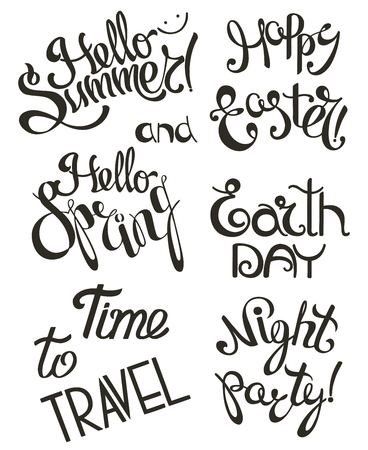 Hello
Summer!
and
Hello
Spring
Time
to
TRAVEL
Happy
Easter!
Earth
DAY
Night
party!